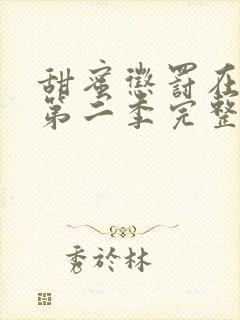 甜蜜懲罰在
第二季完整
秀於林